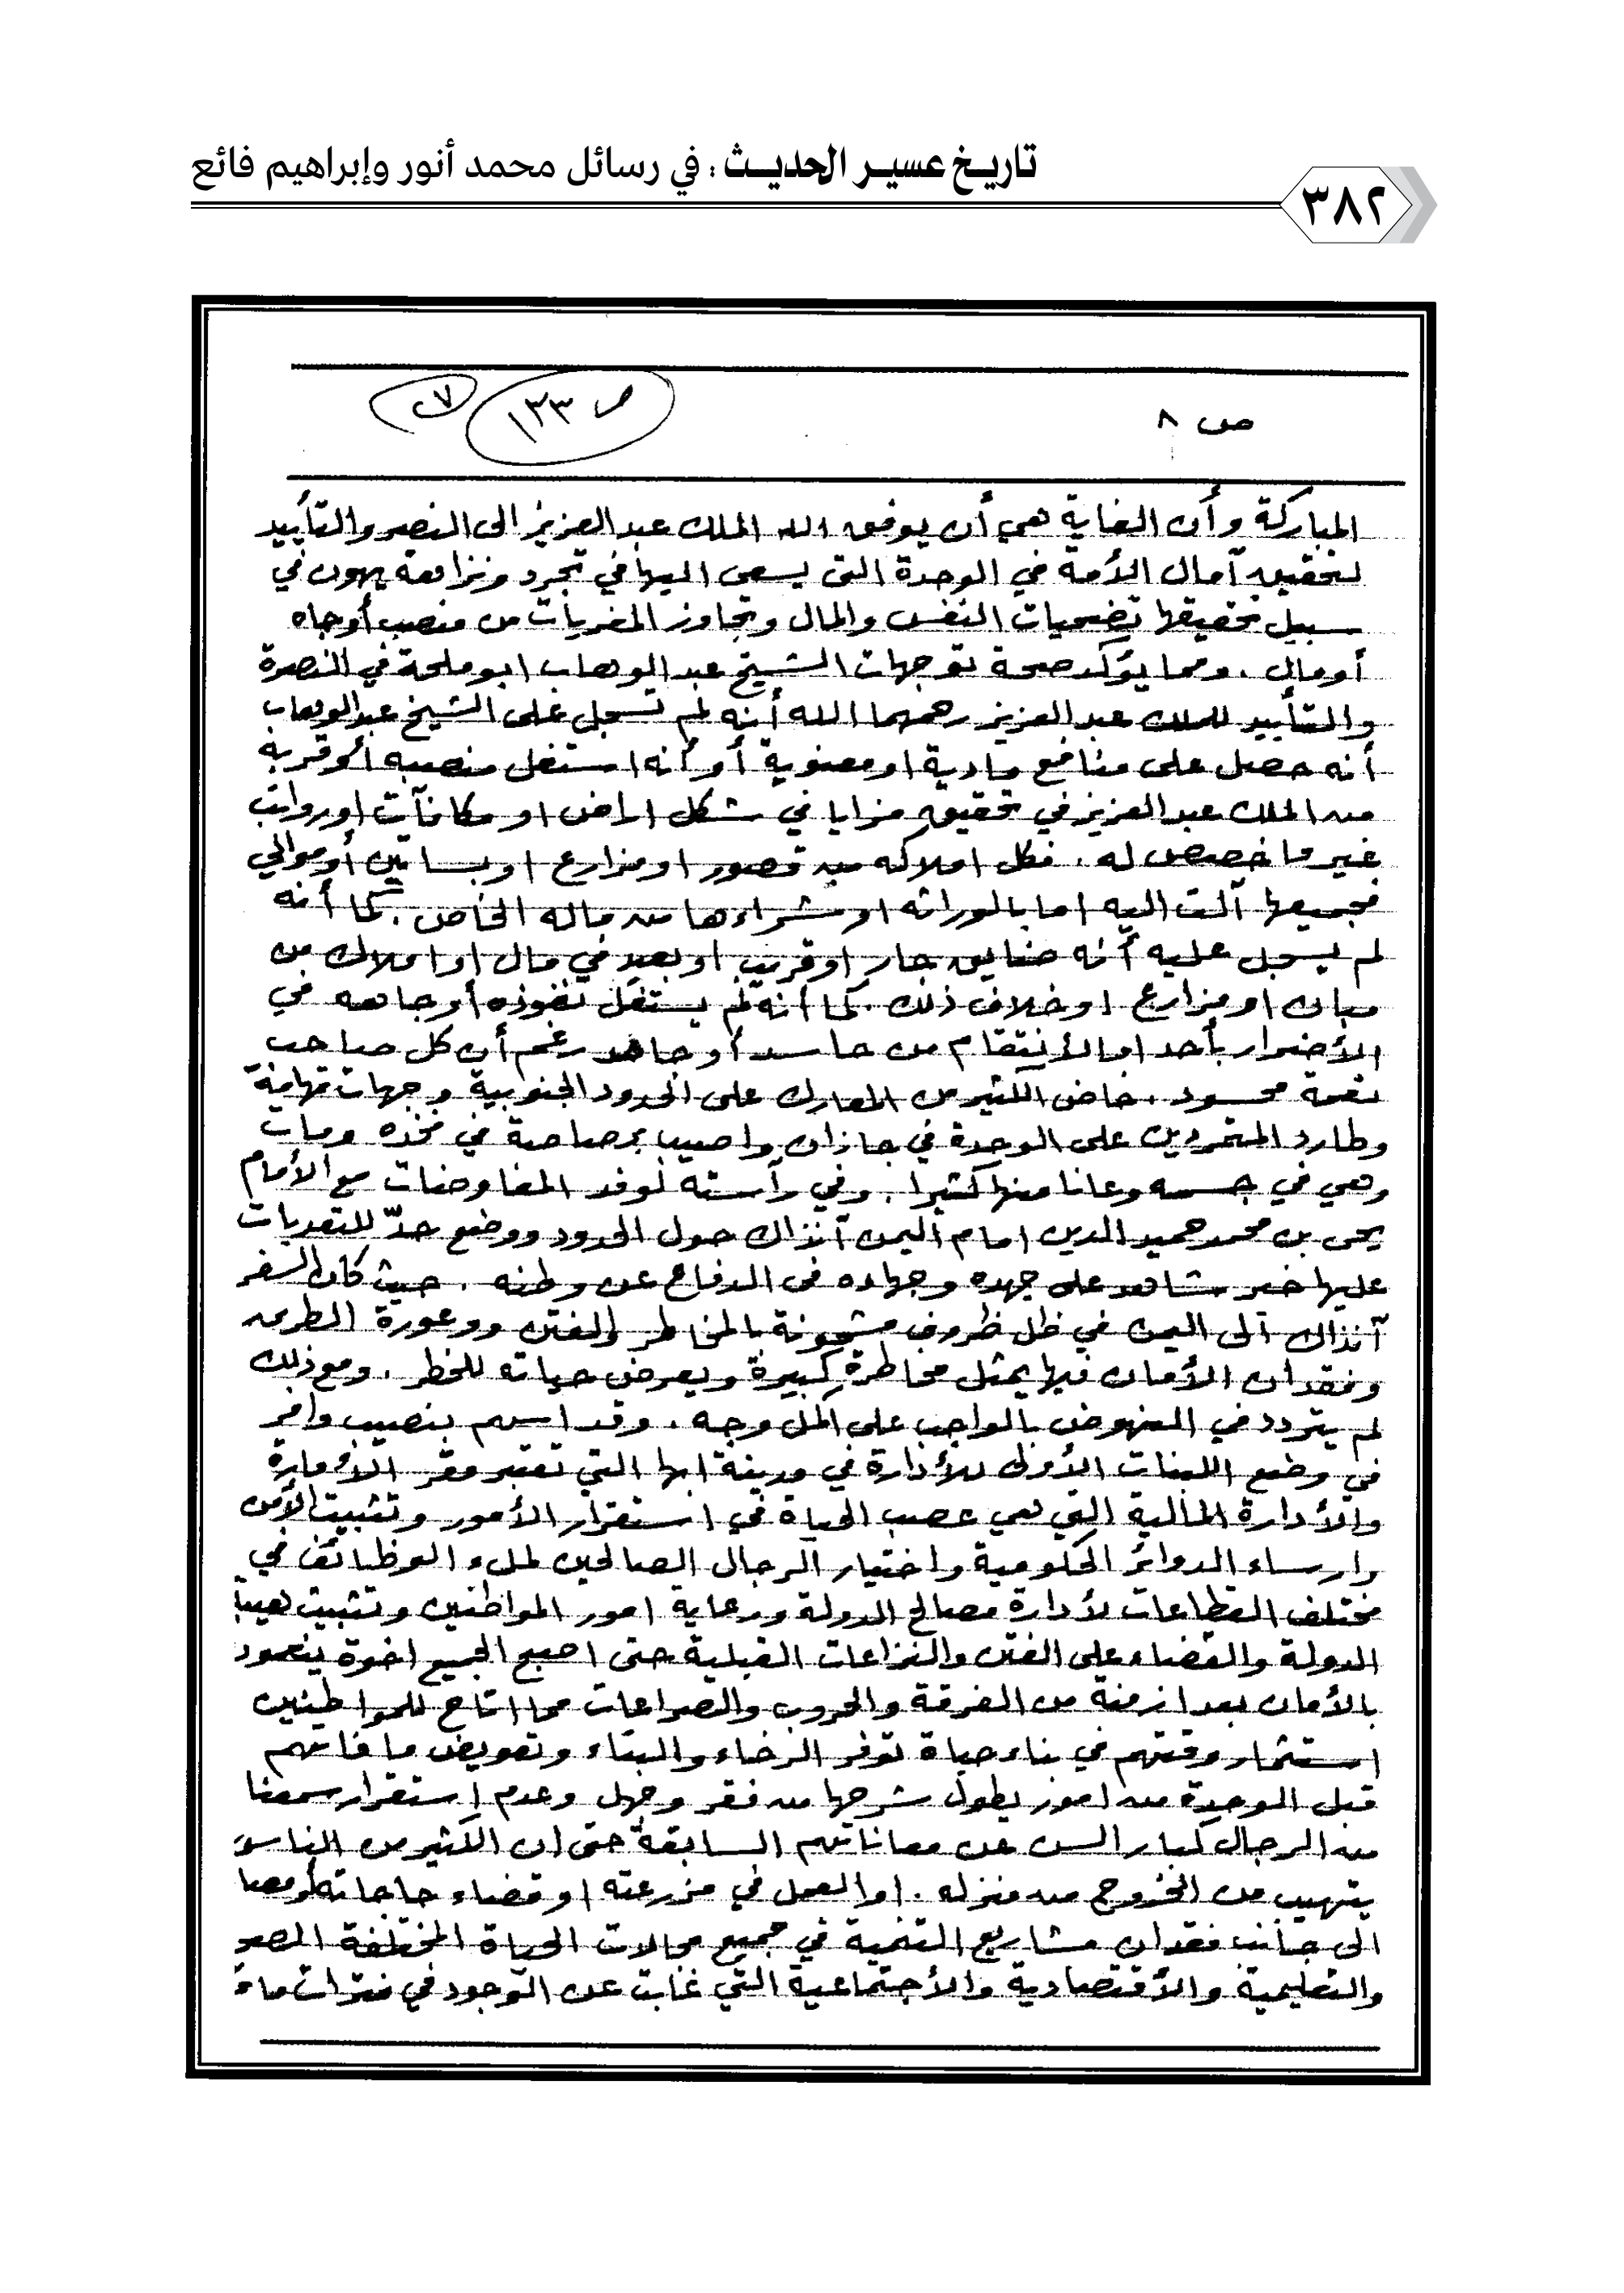 تاريخ عسير الحديث : في رسائل محمد أنور وإبراهيم فائع
٣٨٢
ص ٨
ص ١٣٣
المباركة وأن الغاية هي أن يوفق الله الملك عبد العزيز الى النصر والتأييد
لتحقيق آمال الأمة في الوحدة التى يسعى اليها في تجرد ونزاهة يهون في
سبيل تحقيقها تضحيات النفس والمال وتجاوز المغريات من منصب أوجاه
أومال . ومما يؤكد صحة توجهات الشيخ عبد الوهاب ابوملحة في النصرة
والتأييد للملك عبد العزيز رحمهما الله أنه لم تسجل على الشيخ عبدالوهاب
أنه حصل على منافع مادية او معنوية أو أنه استغل منصبه أو قربه
من الملك عبد العزيز في تحقيق مزايا في شكل اراض او مكافآت او رواتب
غير ما خصص له . فكل املاكه من قصور او مزارع او بساتين أو موالي
فجميعها آلت اليه اما بالوراثه او شراءها من ماله الخاص . كما أنه
لم يسجل عليه أنه ضايق جار او قريب او بعيد في مال او املاك من
مبان او مزارع او خلاف ذلك . كما أنه لم يستغل نفوذه أو جاهه في
الأضرار بأحد او الأنتقام من حاسد أو جاحد رغم أن كل صاحب
نعمة محسود . خاض الكثير من المعارك على الحدود الجنوبية وجهات تهامة
وطارد المتمردين على الوحدة في جازان واصيب برصاصة في فخذه ومات
وهي في جسمه وعانا منها كثيرا . وفي رآسته لوفد المفاوضات مع الأمام
يحى بن محمد حميد الدين امام اليمن آنذاك حول الحدود ووضع حدّ للتعديات
عليها خير شاهد على جهده وجهاده فى الدفاع عن وطنه . حيث كان السفر
آنذاك الى اليمن في ظل ظروف مشحونة بالمخاطر والفتن ووعورة الطريق
وفقدان الأمان فيها يمثل مخاطرة كبيرة ويعرض حياته للخطر . ومع ذلك
لم يتردد في النهوض بالواجب على اكمل وجه . وقد اسهم بنصيب وافر
في وضع اللبنات الأولى للأدارة في مدينة ابها التي تعتبر مقر الأمارة
والأدارة المالية التي هي عصب الحياة في استقرار الأمور وتثبيت الأمن
وارساء الدوائر الحكومية واختيار الرجال الصالحين لملء الوظائف في
مختلف القطاعات لأدارة مصالح الدولة ورعاية امور المواطنين وتثبيت هيبة
الدولة والقضاء على الفتن والنزاعات القبلية حتى اصبح الجميع اخوة ينعمون
بالأمان بعد ازمنة من الفرقة والحروب والصراعات مما اتاح للمواطنين
استثمار وقتهم في بناء حياة توفر الرخاء والبناء وتعويض ما فاتهم
قبل الوحدة من امور يطول شرحها من فقر وجهل وعدم استقرار سمعنا
من الرجال كبار السن عن معاناتهم السابقة حتى ان الكثير من الناس
يتهيب من الخروج من منزله . او العمل في مزرعته او قضاء حاجاته
الى جانب فقدان مشاريع التنمية في جميع مجالات الحياة المختلفة
والتعليمية والأقتصادية والأجتماعية التي غابت عن الوجود في فترات